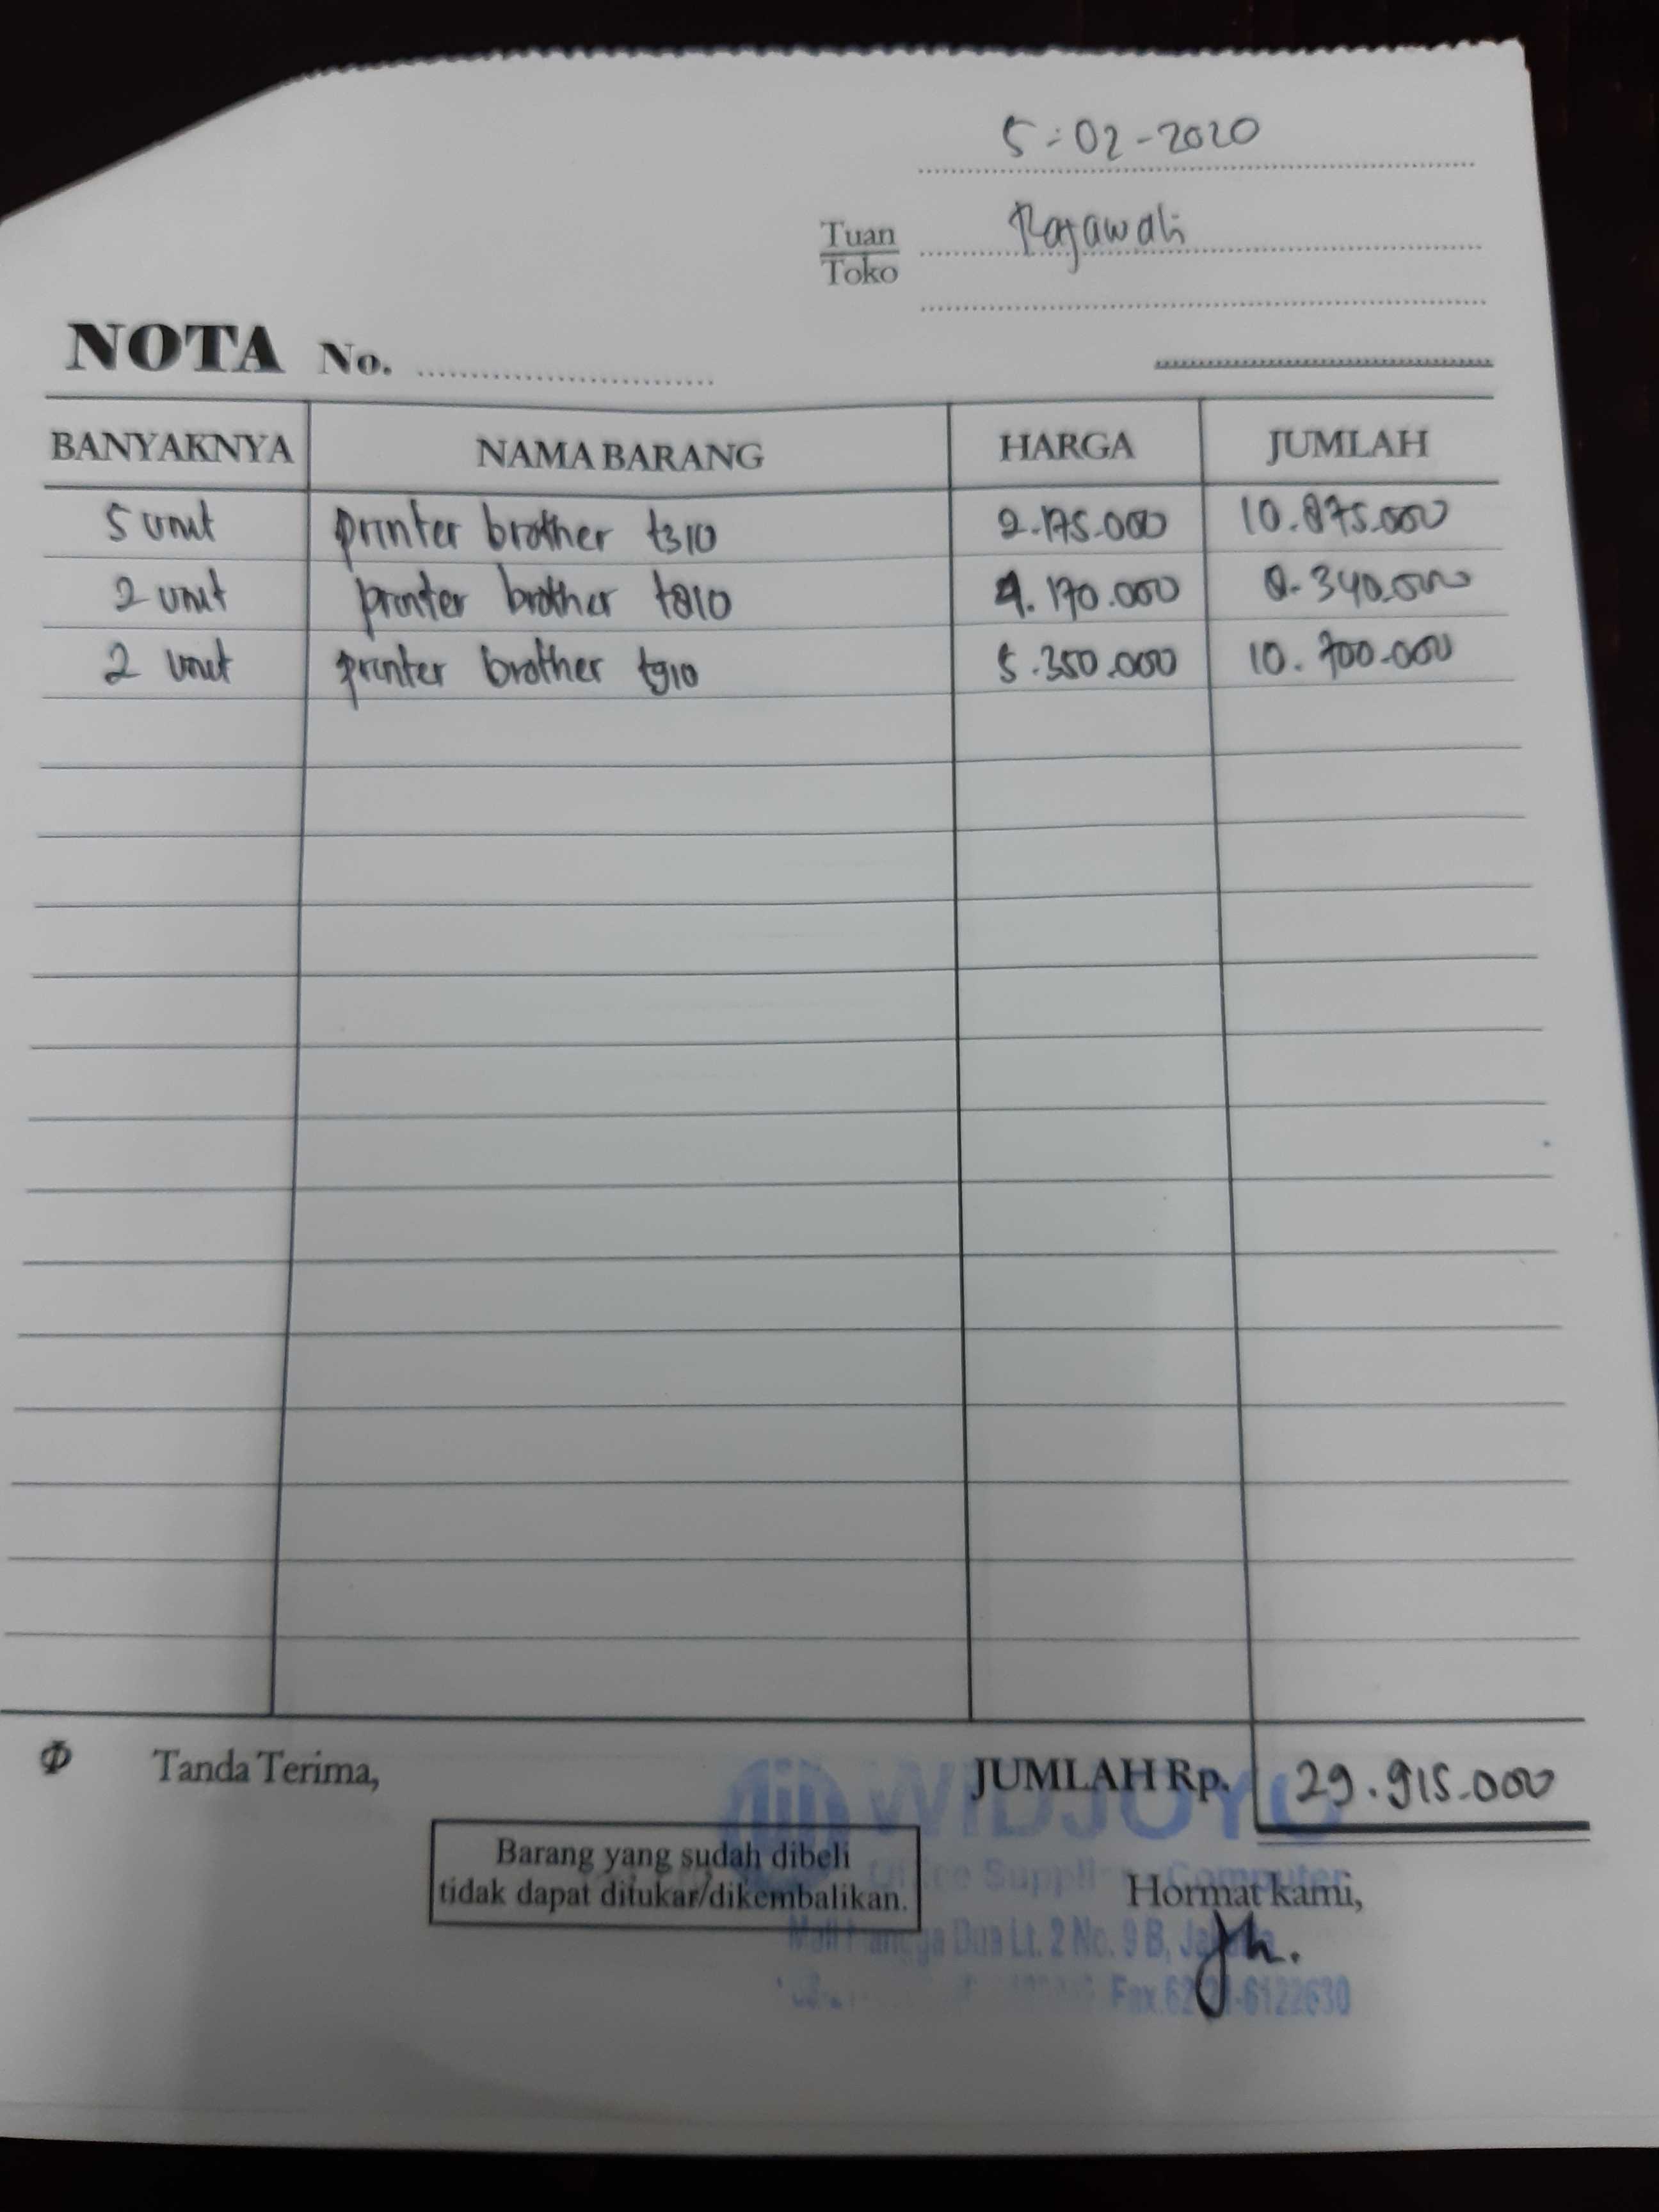 5-02-2020
Tuan
Toko
Rajawali
NOTA No.
BANYAKNYA NAMA BARANG HARGA JUMLAH
5 unit printer brother t310 2.175.000 10.875.000
2 unit printer brother t810 4.170.000 8.340.000
2 unit printer brother t910 5.350.000 10.700.000
Tanda Terima, JUMLAH Rp. 29.915.000
WIDJOYO
Barang yang sudah dibeli
tidak dapat ditukar/dikembalikan.
Office Supplies Computer
Hormat kami,
Mall Mangga Dua Lt. 2 No. 9 B, Jakarta
Fax.62-21-6122630